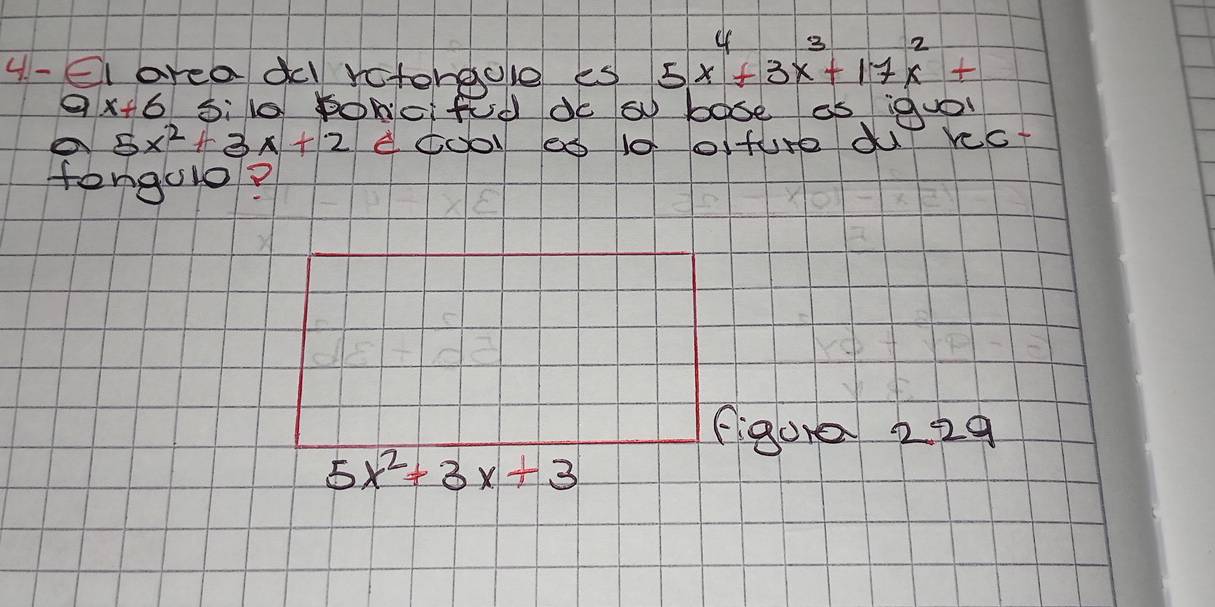 4-El area del rctongulo es 5x⁴+3x³+17x²+
9x+6 si la bonicitud de su base es igual
a 5x²+3x+2 ¿ cual es la altura du rec-
tangulo?
figura 2.29
5x²+3x+3